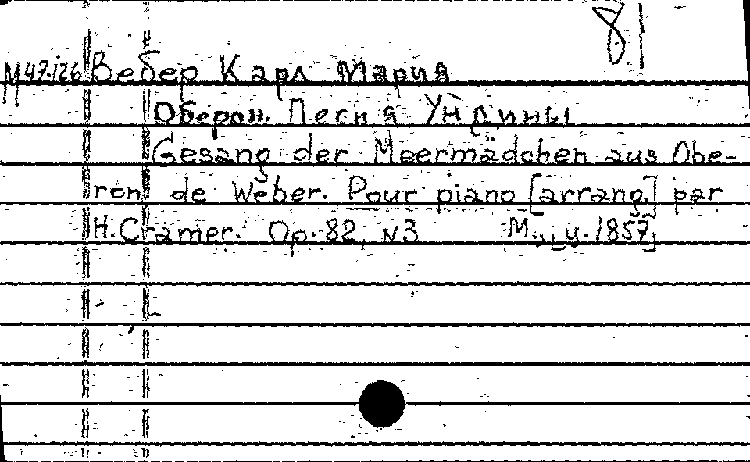 8
М47.126 Вебер Карл Мария
Оберон. Песня Ундины
Gesang der Meermädchen aus Obe-
ron de Weber. Pour piano [arrang.] par
H. Cramer. Op. 82, N3 М., ц. 1857.